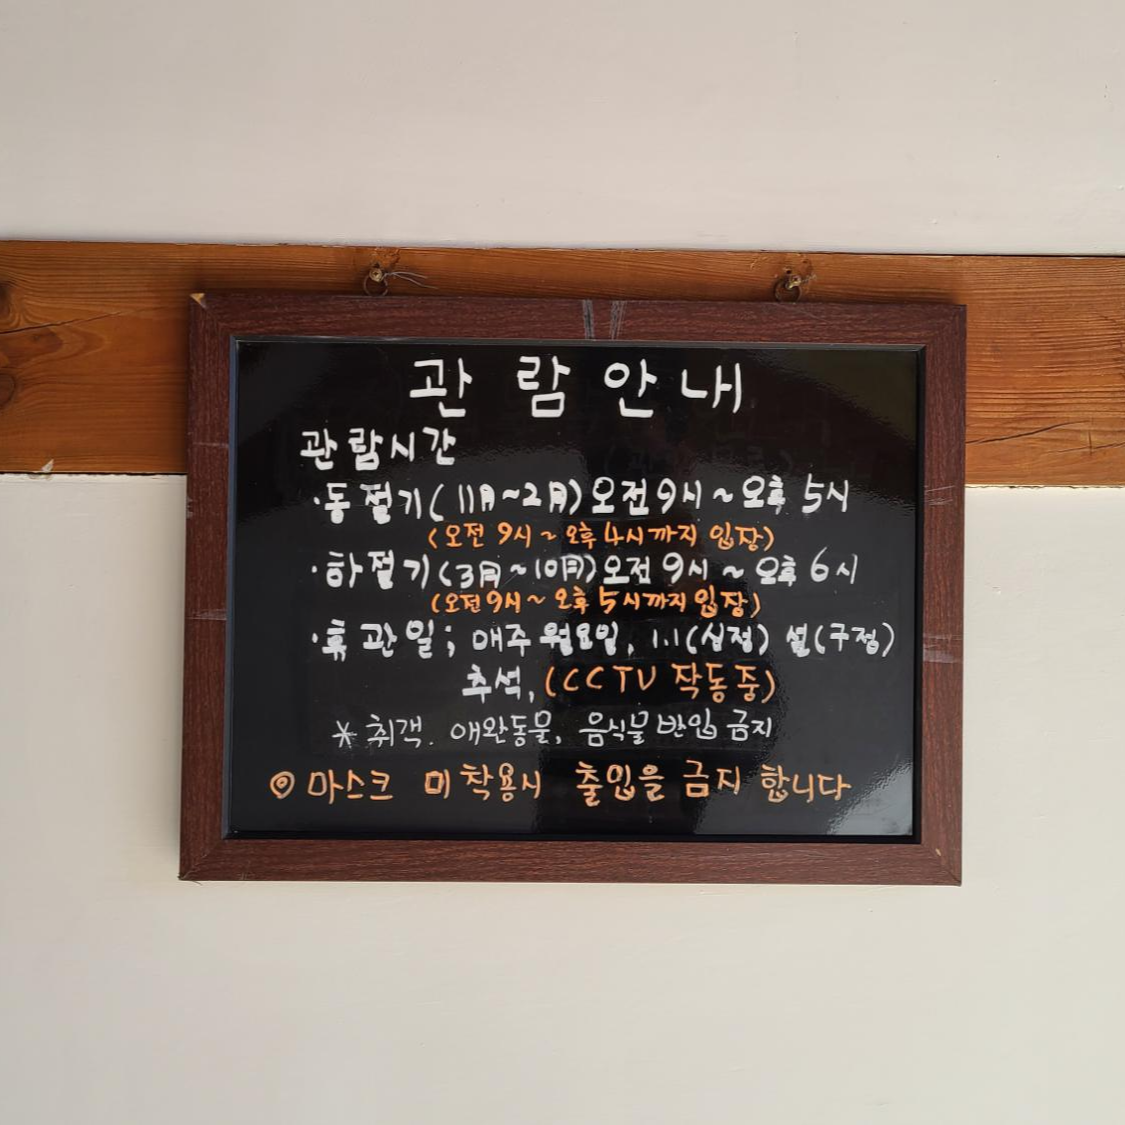 관람안내
관람시간
·동절기(11月~2月)오전9시~오후 5시
(오전 9시~오후4시까지 입장)
·하절기(3月~10月)오전9시~오후6시
(오전9시~오후5시까지입장)
·휴관일; 매주 월요일, 1.1(신정) 설(구정)
추석,(CCTV 작동중)
* 취객. 애완동물, 음식물반입 금지
◎ 마스크 미착용시 출입을 금지 합니다